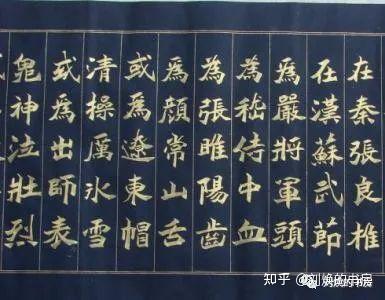 在秦張良椎
在漢蘇武節
爲嚴將軍頭
為嵇侍中血
為張睢陽齒
爲顏常山舌
或為遼東帽
清操厲冰雪
或為出師表
鬼神泣壯烈
知乎 @刘焕的书房
刘焕的书房